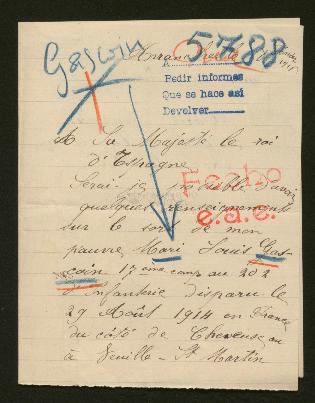 Gascoin
5788
Pedir informes
Que se hace así
Devolver
Fecho
e.a.e.
A Sa Majesté le roi
d'Espagne
Serai-je possible d'avoir
quelques renseignements
sur le sort de mon
pauvre Mari Louis Gas-
coin 17eme comp au 202
d'infanterie disparu le
29 Août 1914 en France
du côté de
à Neuville - St Martin